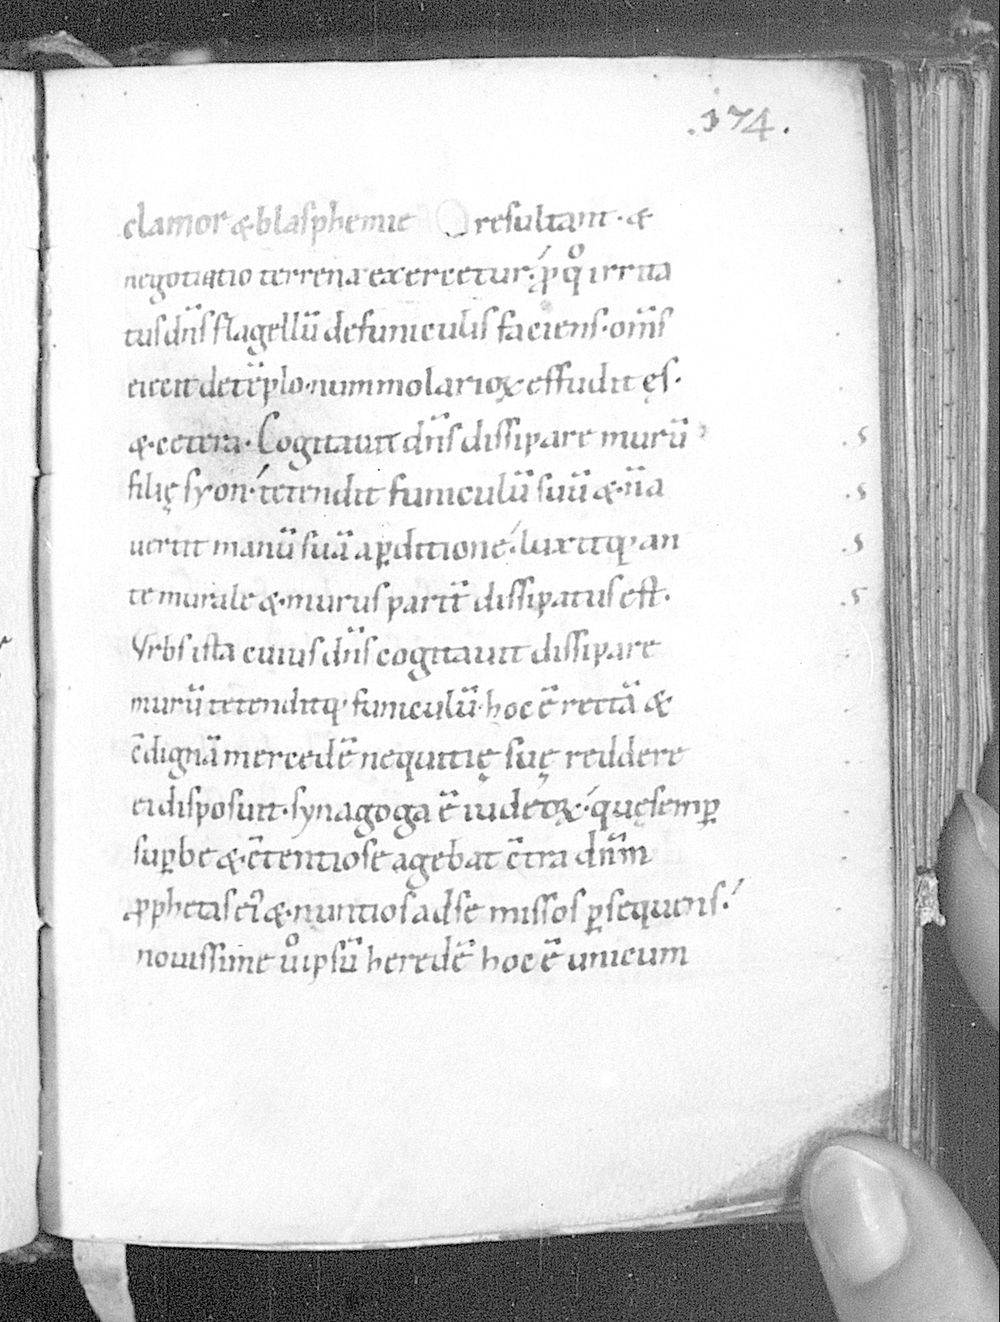 .174.
clamor & blasphemie resultant · &
negotiatio terrena exercetur. ꝓ qͦ irrita
tus dn̄s flagellū de funiculis faciens · om̄s
eiecit de tēplo · nummolarioꝝ effudit ęs ·
& cetera · Cogitauit dn̄s dissipare murū .s
filię syon · tetendit funiculū suū & · n̄ a .s
uertit manū suā a ꝑditione · luxitq; an .s
te murale & · murus parit̄ dissipatus est · .s
Vrbs ista cuius dn̄s cogitauit dissipare
murū tetenditq; funiculū · hoc ē rectā &
c̄dignā mercedē nequitię suę reddere
ei disposuit · synagoga ē iudeoꝝ · quę semꝑ
suꝑbe & c̄tentiose agebat c̄tra dn̄m
ꝓphetas ei᾽ & · nuntios ad se missos ꝑsequens ·
nouissime uͦ ipsū heredē hoc ē unicum